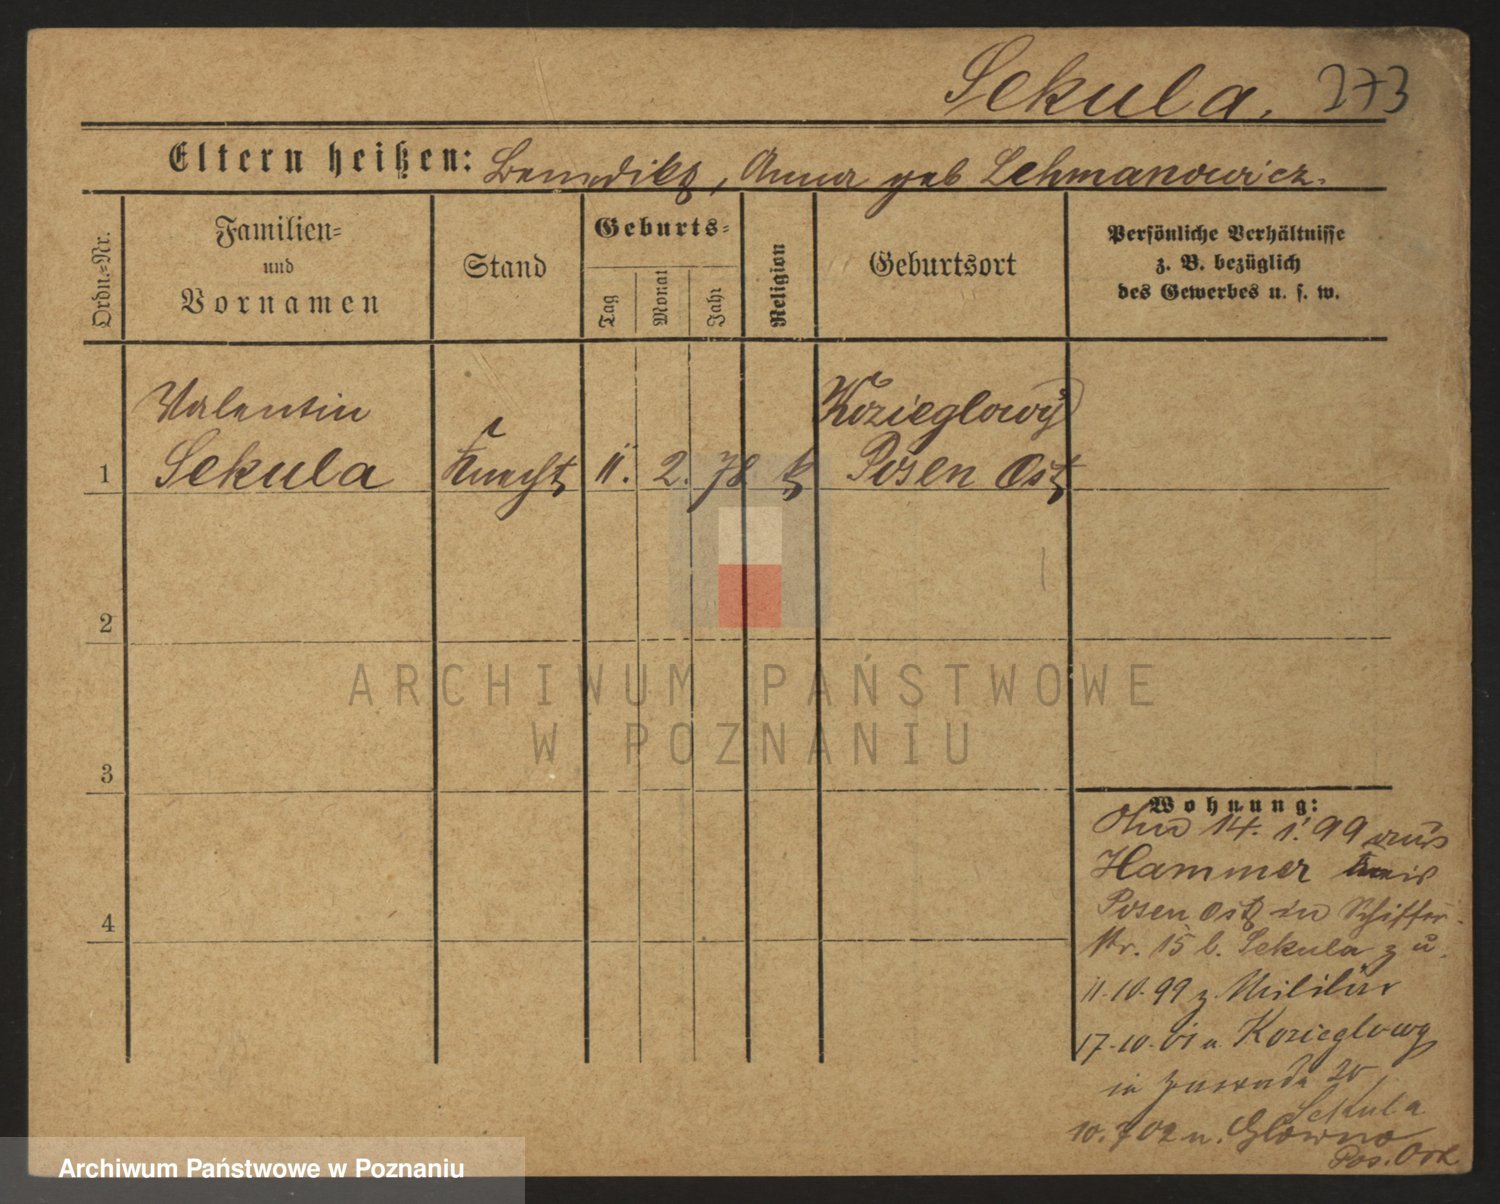 Sekula. 273
Eltern heißen: Benedikt, Anna geb Lehmanowicz.
Ordn.-Nr.
Familien-
und
Vornamen
Stand
Geburts-
Tag
Monat
Jahr
Religion
Geburtsort
Persönliche Verhältnisse
z. B. bezüglich
des Gewerbes u. s. w.
Valentin Kozieglowy
1 Sekula Knecht 11. 2. 78 k Posen Ost
2
3
4
Wohnung:
14. 1. 99 aus
Hammer Kreis
Posen Ost in Schiffer-
str. 15 b. Sekula zu.
11.10.99 z. Militär
17.10.01 n Kozieglowy
in Zawade 20
Sekula
10.7 02 n. Glowno
Pos. Ost
ARCHIWUM PAŃSTWOWE
W POZNANIU
Archiwum Państwowe w Poznaniu